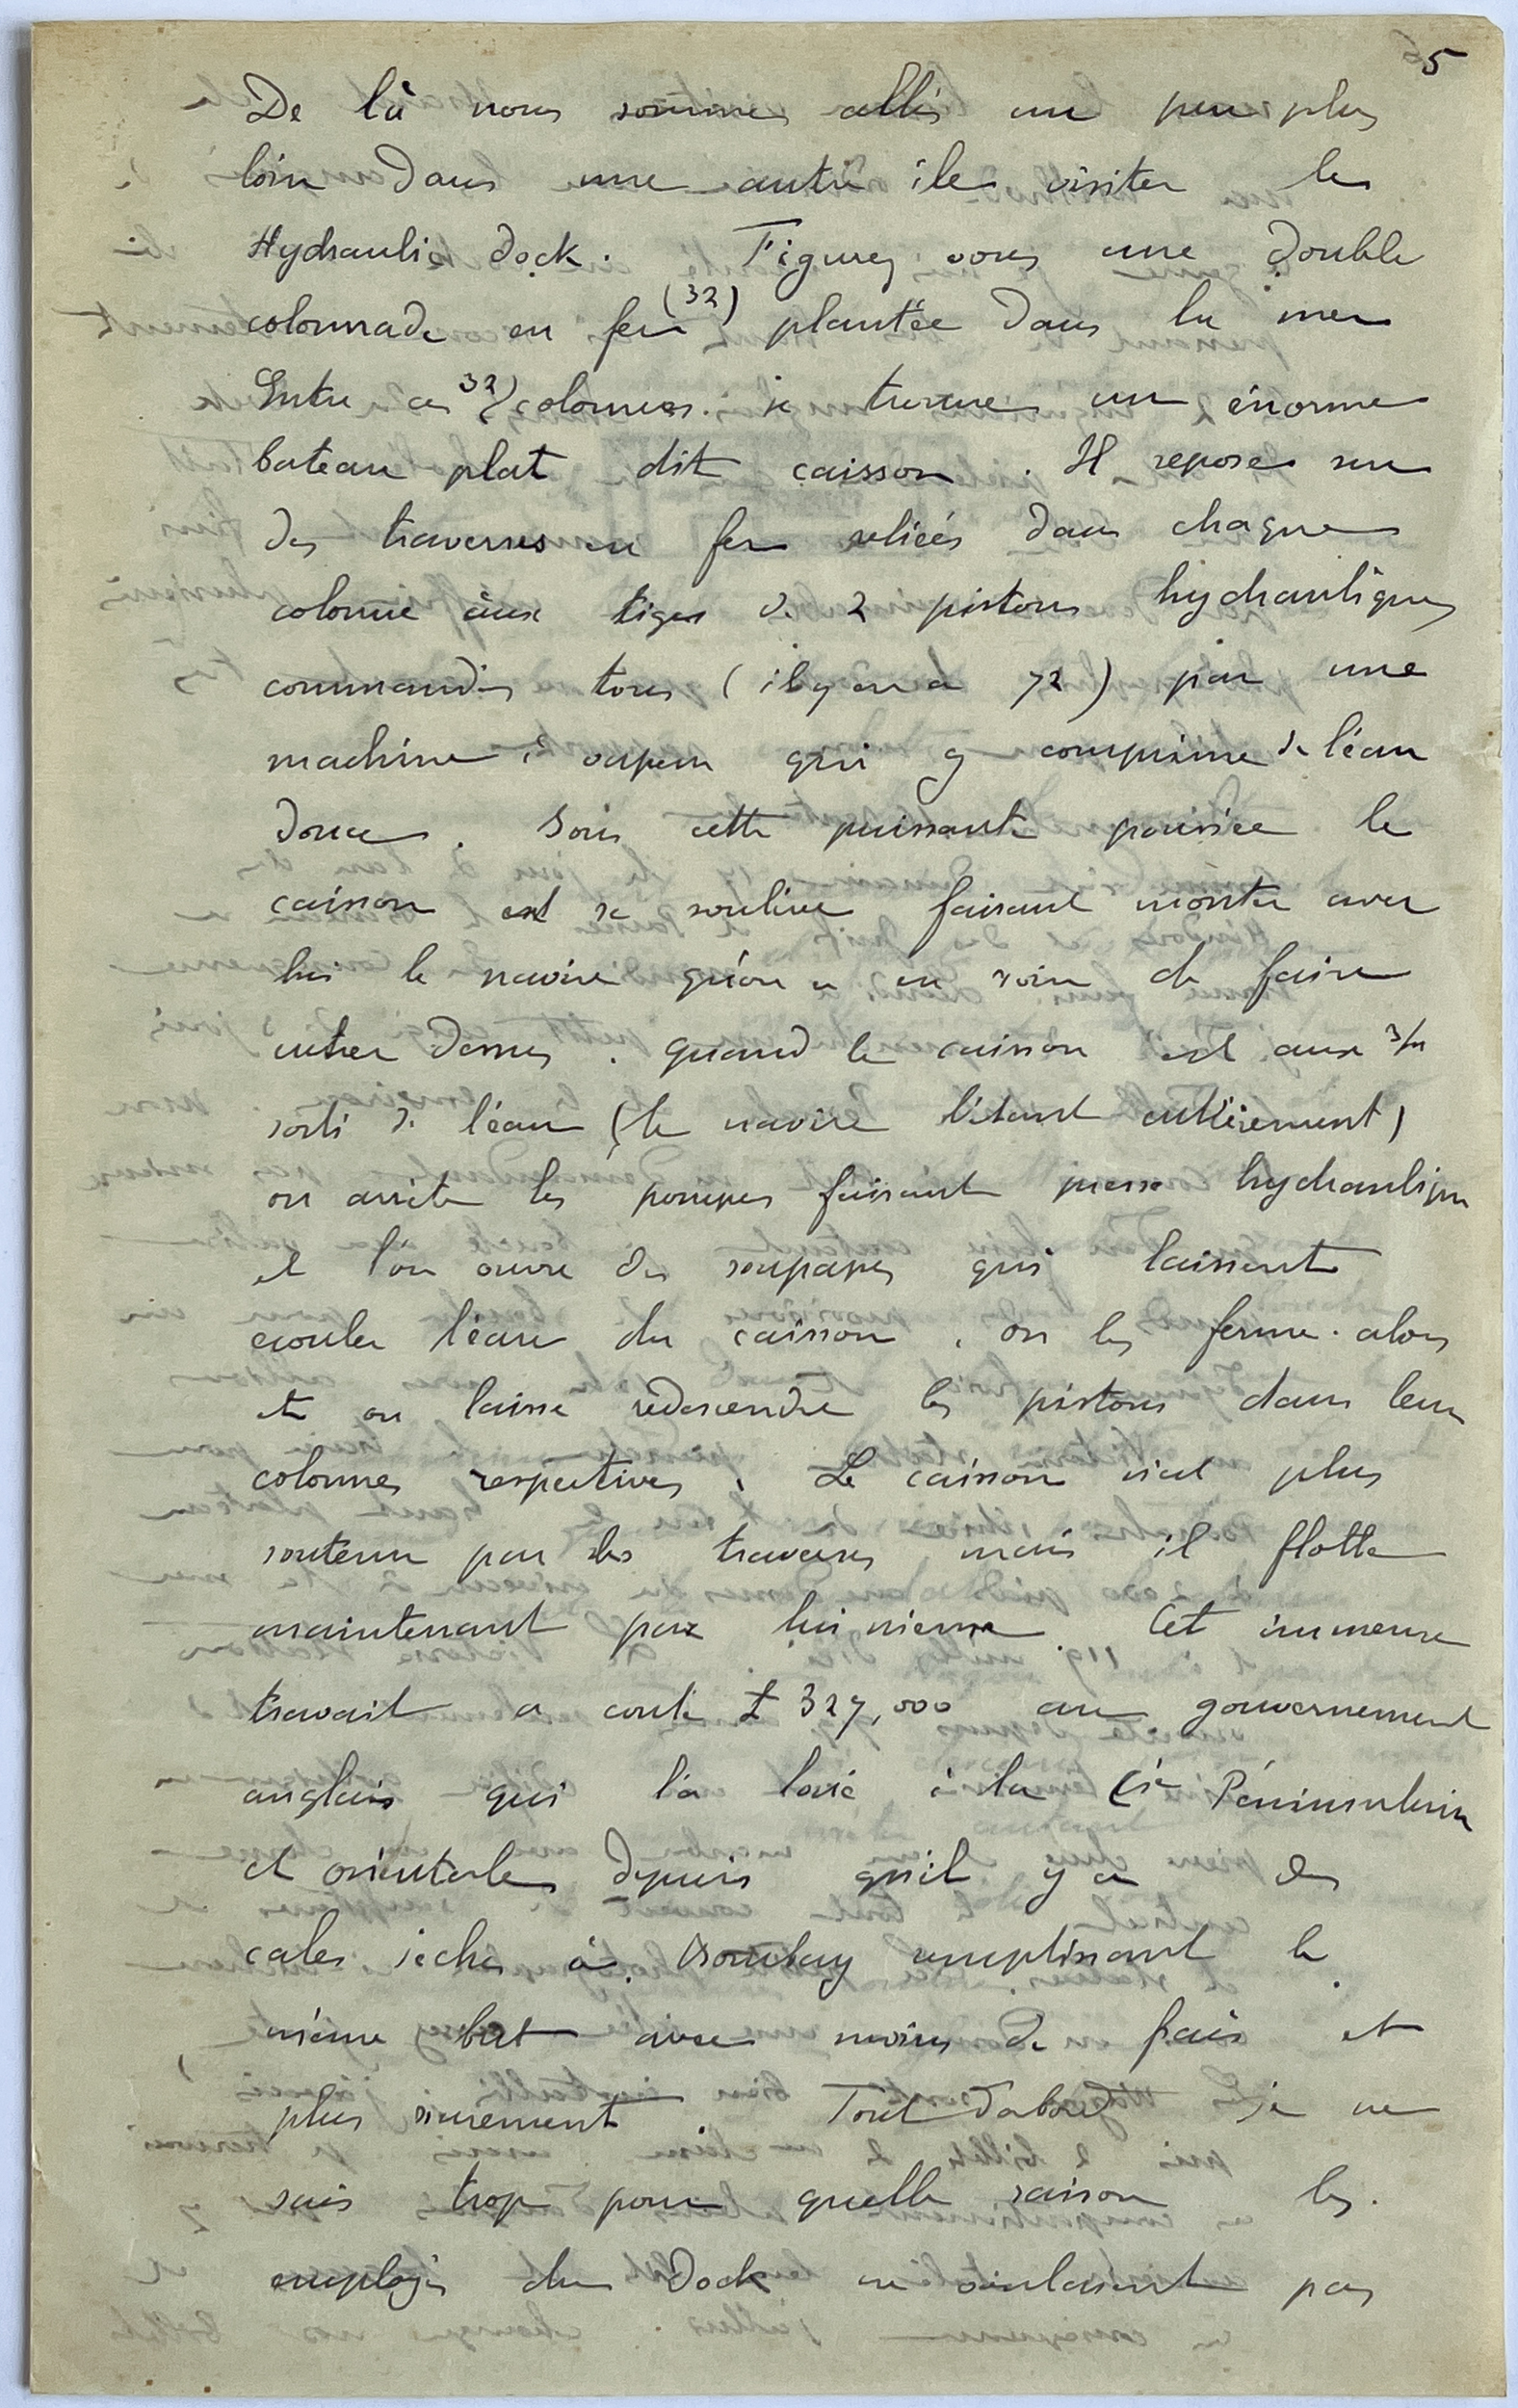 5
De là nous sommes allés un peu plus
loin dans une autre île visiter le
Hydraulic dock. Figurez vous une double
colonnade en fer (32) plantée dans la mer
Entre ces 32 colonnes. se trouve un énorme
bateau plat dit caisson. Il repose sur
des traverses en fer reliées dans chaque
colonne aux tiges de 2 pistons hydrauliques
commandés tous (il y en a 72) par une
machine à vapeur qui y comprime de l'eau
douce. Sous cette puissante poussée le
caisson est se soulève faisant monter avec
lui le navire qu'on a eu soin de faire
entrer dessus. quand le caisson est aux 3/4
sorti de l'eau (le navire l'étant entièrement)
on arrête les pompes faisant presse hydraulique
et l'on ouvre des soupapes qui laissent
ecouler l'eau du caisson. on les ferme. alors
et on laisse redescendre les pistons dans leur
colonnes respectives. Le caisson n'est plus
soutenu par les traverses mais il flotte
maintenant par lui même. Cet immense
travail a couté £ 327,000 au gouvernement
anglais qui l'a loué à la Cie Péninsulaire
et orientale depuis qu'il y a des
cales sèches à Bombay remplissant le
même but avec moins de frais et
plus surement Tout d'abord je ne
sais trop pour quelle raison les
employés du Dock ne voulaient pas